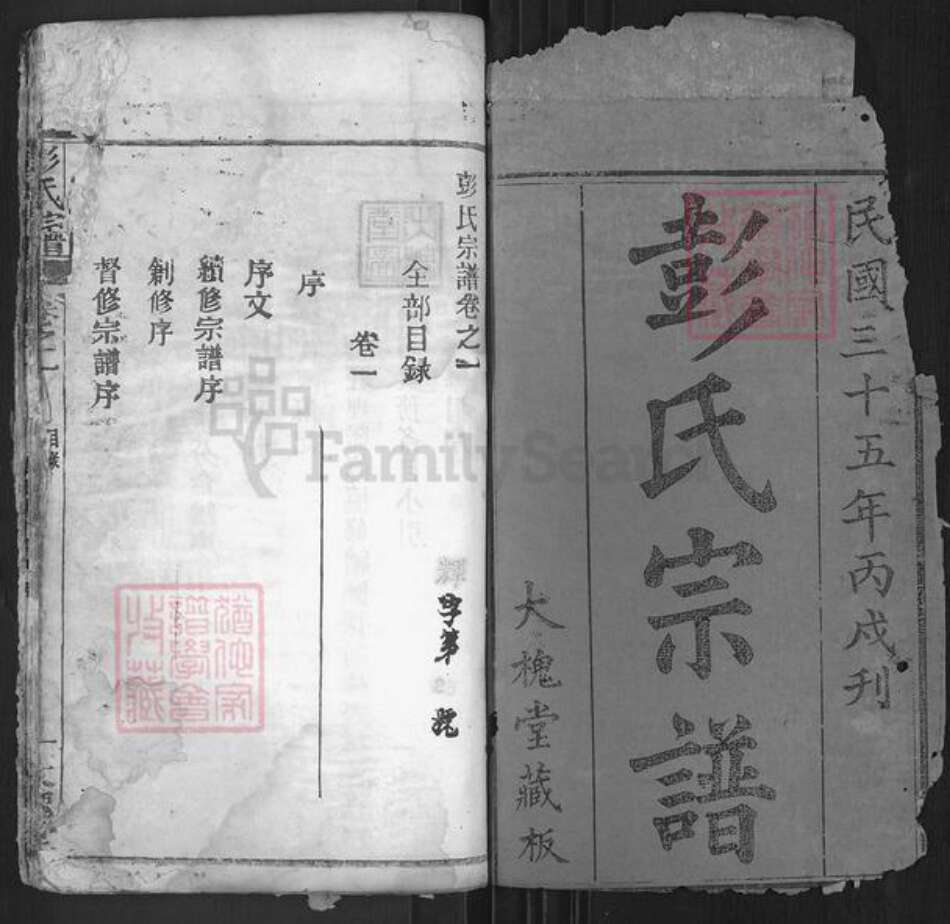 民國三十五年丙戌刋
彭氏宗譜
大槐堂藏板
彭氏宗譜卷之一
全部目錄
卷一
序
序文
續修宗譜序
創修序
督修宗譜序
字第
號
彭氏宗譜
卷之一
目錄
猶他家譜學會收藏
FamilySearch